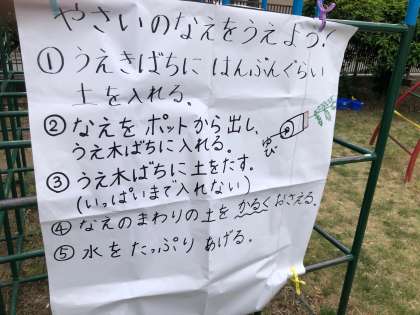 やさいのなえをうえよう!
① うえきばちに はんぶんぐらい
土を入れる.
② なえを ポットから 出し、
うえ木ばちに入れる.
ゆび
③ うえ木ばちに土をたす.
(いっぱいまで入れない)
④ なえのまわりの土を かるく おさえる.
⑤ 水を たっぷり あげる.